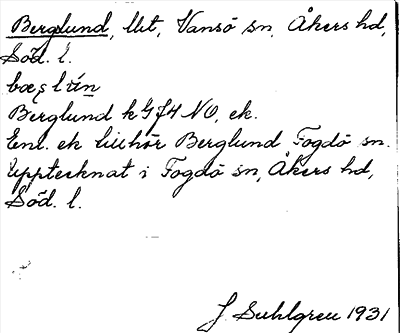 Berglund, lht, Vansö sn, Åkers hd,
Söd. l.
Berglund k GJ4 NO, ek.
Enl. ek tillhör Berglund Fogdö sn.
Upptecknat i Fogdö sn, Åkers hd,
Söd. l.
J Suhlgren 1931